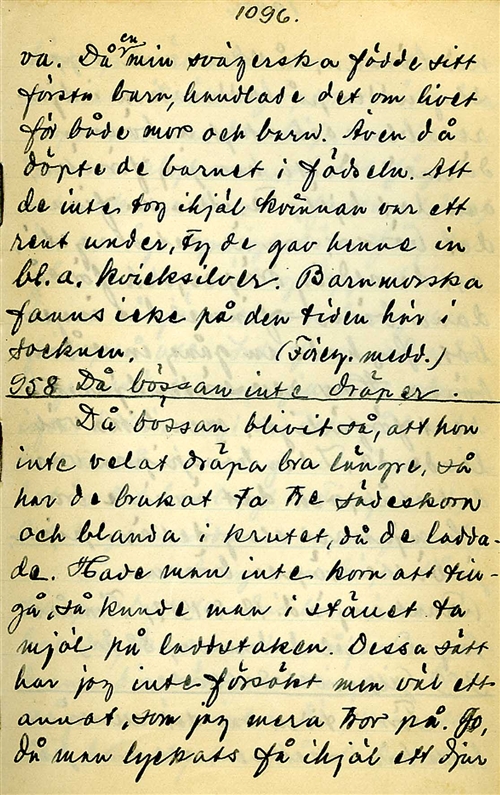 1096.
va. Då en min svägerska födde sitt
första barn, handlade det om livet
för både mor och barn. Även då
döpte de barnet i födseln. Att
de inte tog ihjäl kvinnan var ett
rent under, ty de gav henne in
bl. a. kvicksilver. Barnmorska
fanns icke på den tiden här i
socknen. (Föreg. medd.)
958 Då bössan inte dräper.
Då bössan blivit så, att hon
inte velat dräpa bra längre, så
har de brukat ta tre sädeskorn
och blanda i krutet, då de ladda-
de. Hade man inte korn att till-
gå, så kunde man i stället ta
mjöl på laddstaken. Dessa sätt
har jag inte försökt men väl ett
annat, som jag mera tror på. Jo,
då man lyckats få ihjäl ett djur